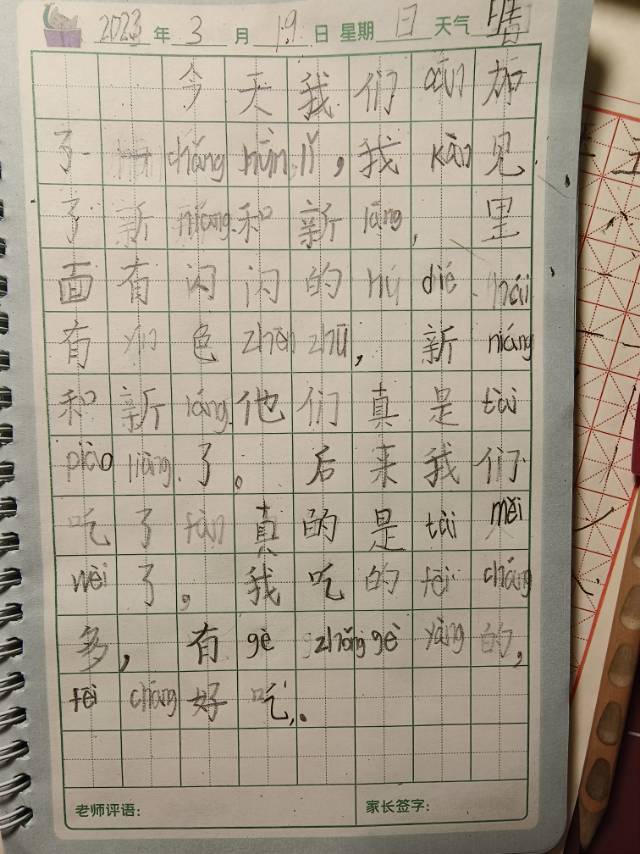 2023 年 3 月 19 日 星期 日 天气 晴
今天我们cān加
了一chǎng hūn lǐ,我kàn见
了新niáng和新láng,里
面有闪闪的hú dié.hái
有 色zhēn zhū,新niáng
和新láng他们真是tài
piào liàng了。后来我们
吃了fàn真的是tài měi
wèi了,我吃的fēi cháng
多,有gè zhǒng gè yàng的,
fēi cháng好吃,.
老师评语: 家长签字: